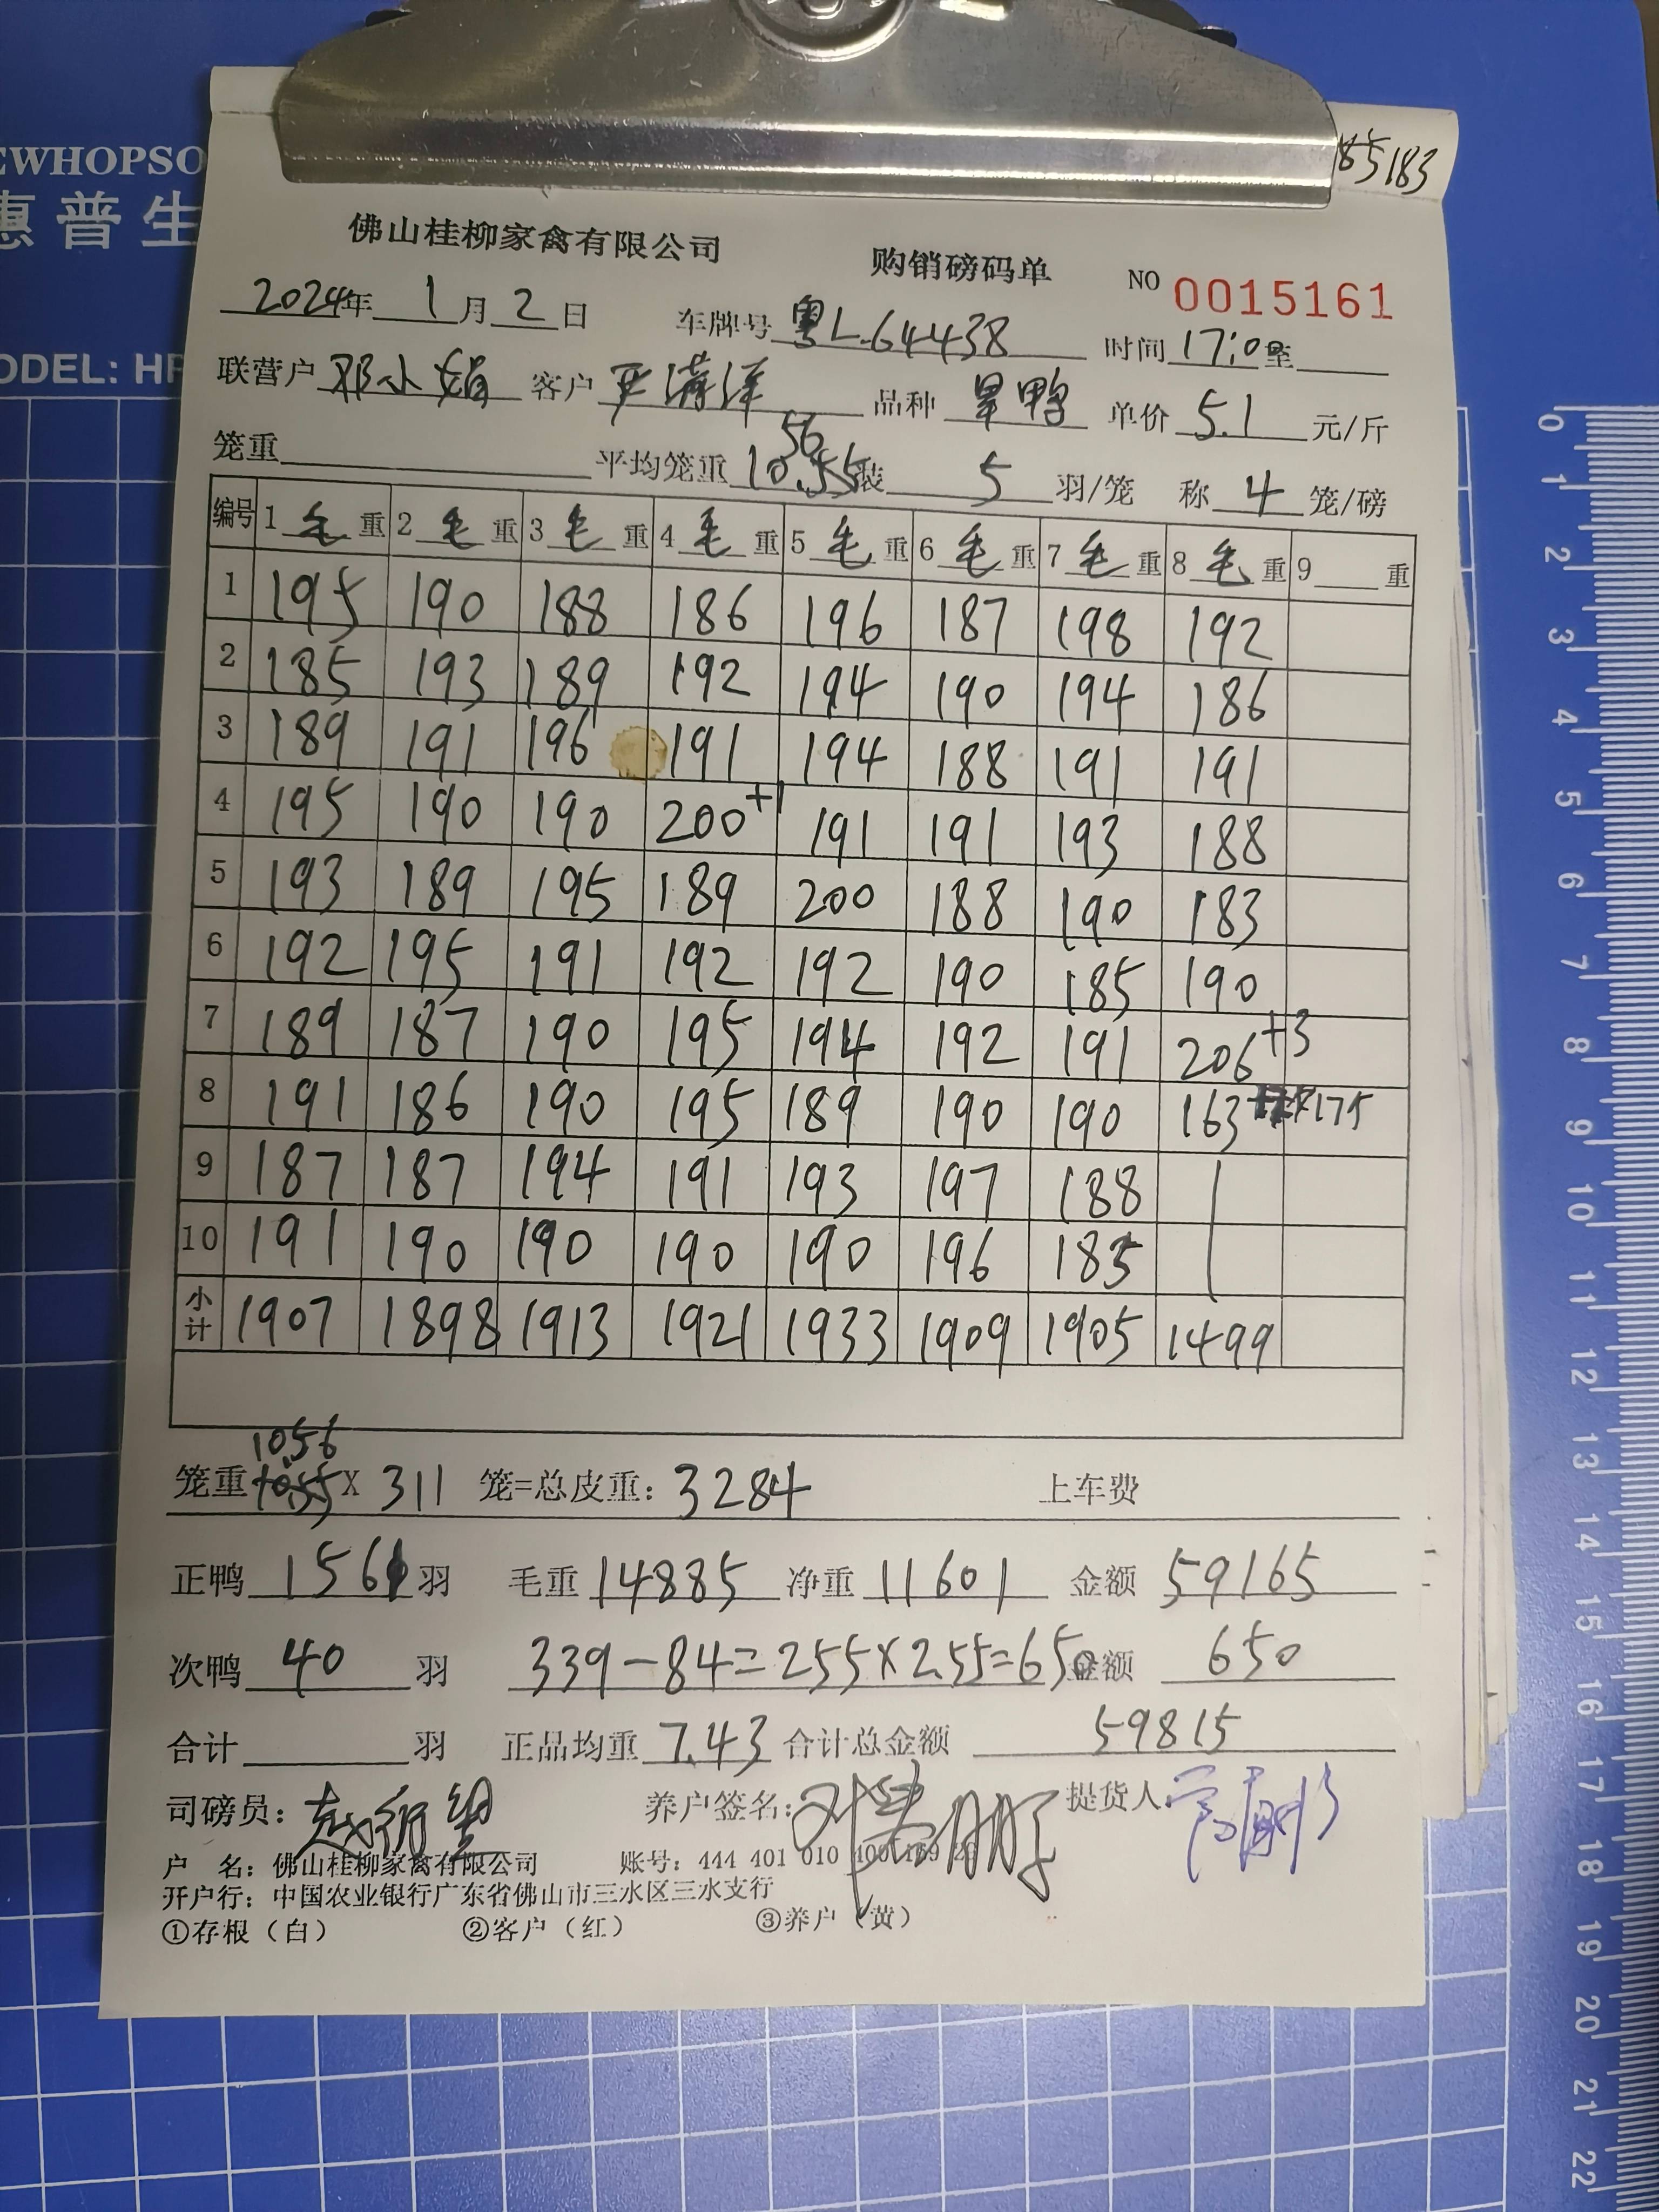 EWHOPSO
惠普生
ODEL: HP
85183
佛山桂柳家禽有限公司 购销磅码单 NO 0015161
2024年 1月 2日 车牌号 粤L.64438 时间 17:0 至
联营户 邓小娟 客户 满洋 品种 旱鸭 单价 5.1 元/斤
56
笼重 平均笼重 10.55 装 5 羽/笼 称 4 笼/磅
编号 1 毛 重 2 毛 重 3 毛 重 4 毛 重 5 毛 重 6 毛 重 7 毛 重 8 毛 重 9 重
1 195 190 188 186 196 187 198 192
2 185 193 189 192 194 190 194 186
3 189 191 196 191 194 188 191 191
4 195 190 190 200+1 191 191 193 188
5 193 189 195 189 200 188 190 183
6 192 195 191 192 192 190 185 190
7 189 187 190 195 194 192 191 206+3
8 191 186 190 195 189 190 190 163 175
9 187 187 194 191 193 197 188
10 191 190 190 190 190 196 185
小计 1907 1898 1913 1921 1933 1909 1905 1499
10.56
笼重 10.55 X 311 笼=总皮重: 3284 上车费
正鸭 1561 羽 毛重 14885 净重 11601 金额 59165
次鸭 40 羽 339-84=255×2.55=650 金额 650
合计 羽 正品均重 7.43 合计总金额 59815
司磅员: 养户签名: 提货人:
户 名: 佛山桂柳家禽有限公司 账号: 444 401 010 400
开户行: 中国农业银行广东省佛山市三水区三水支行
①存根(白) ②客户(红) ③养户(黄)
0
1
2
3
4
5
6
7
8
9
10
11
12
13
14
15
16
17
18
19
20
21
22